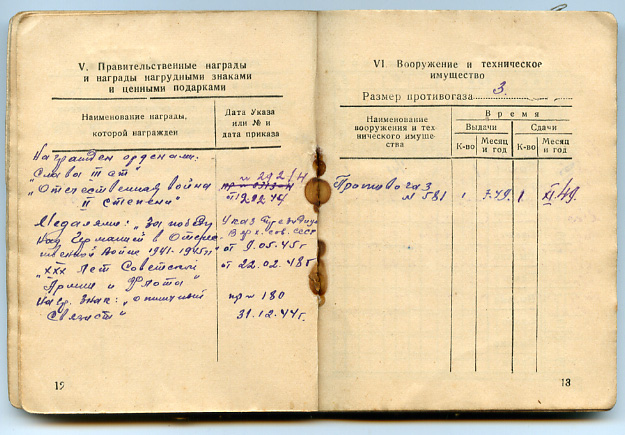 V. Правительственные награды
и награды нагрудными знаками
и ценными подарками
Наименование награды,
которой награжден
Дата Указа
или № и
дата приказа
Награжден орденами:
"Слава III ст"
№ 292/н
"Отечественная война
II степени"
Медалями: "За победу
Указ Президиу
над Германией в Отече
Верх. Сов. СССР
ственной Войне 1941-1945гг
от 9.05.45г
"XXX лет Советской
от 22.02.48г
Армии и Флота"
Нагр. знак: "Отличный
пр № 180
Связист"
31.12.44г.
12
VI. Вооружение и техническое
имущество
Размер противогаза 3.
Наименование
вооружения и тех-
нического имуще-
ства
Время
Выдачи
Сдачи
К-во
Месяц
и год
К-во
Месяц
и год
Противогаз
№ 581
1
7.49.
1
XI/49.
13